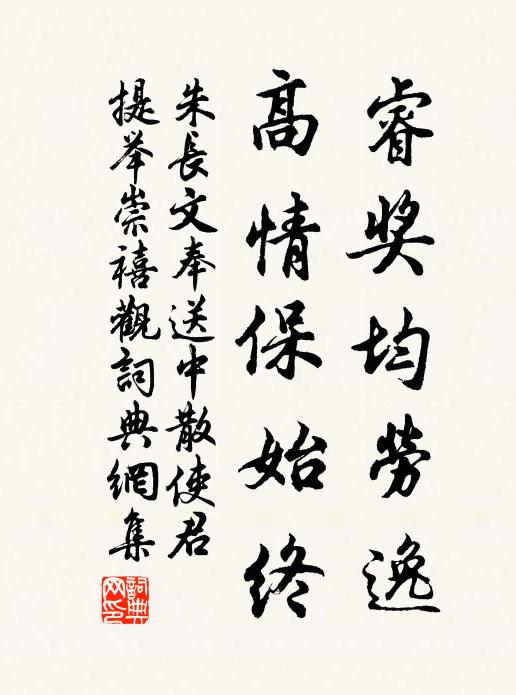 睿奖均劳逸
高情保始终
朱長文奉送中散使君
提举崇禧觀詞典網集
詞典网印